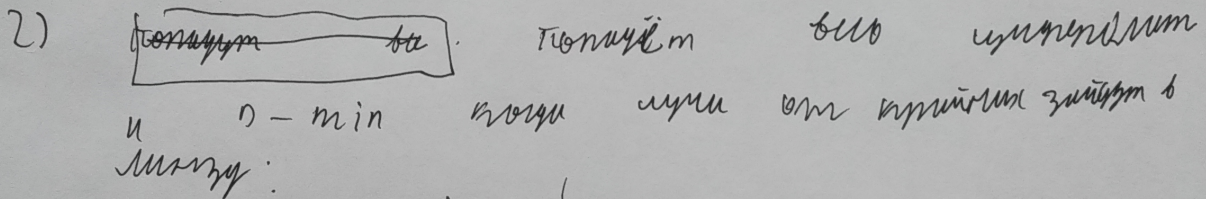 2) попадут ва. попадёт весь
и D - min когда лучи от крайних зайдут в
линзу: